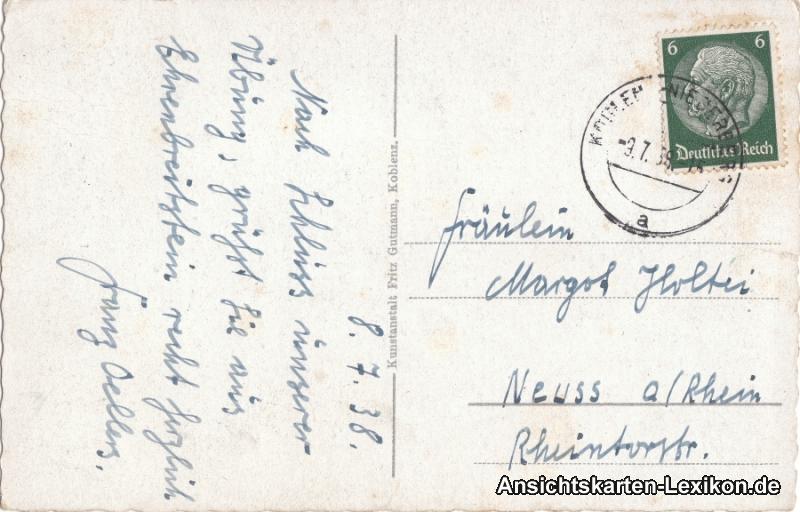 8. 7. 38.
Nach Schluss unserer
Übung, grüßt Sie aus
Ehrenbreitstein recht herzlich
Franz Oellers.
Kunstanstalt Fritz Gutmann, Koblenz.
6 6
Deutsches Reich
(NIEDERB
-9.7.38
a
Fräulein
Margot Holtei
Neuss a/Rhein
Rheintorstr.
Ansichtskarten-Lexikon.de